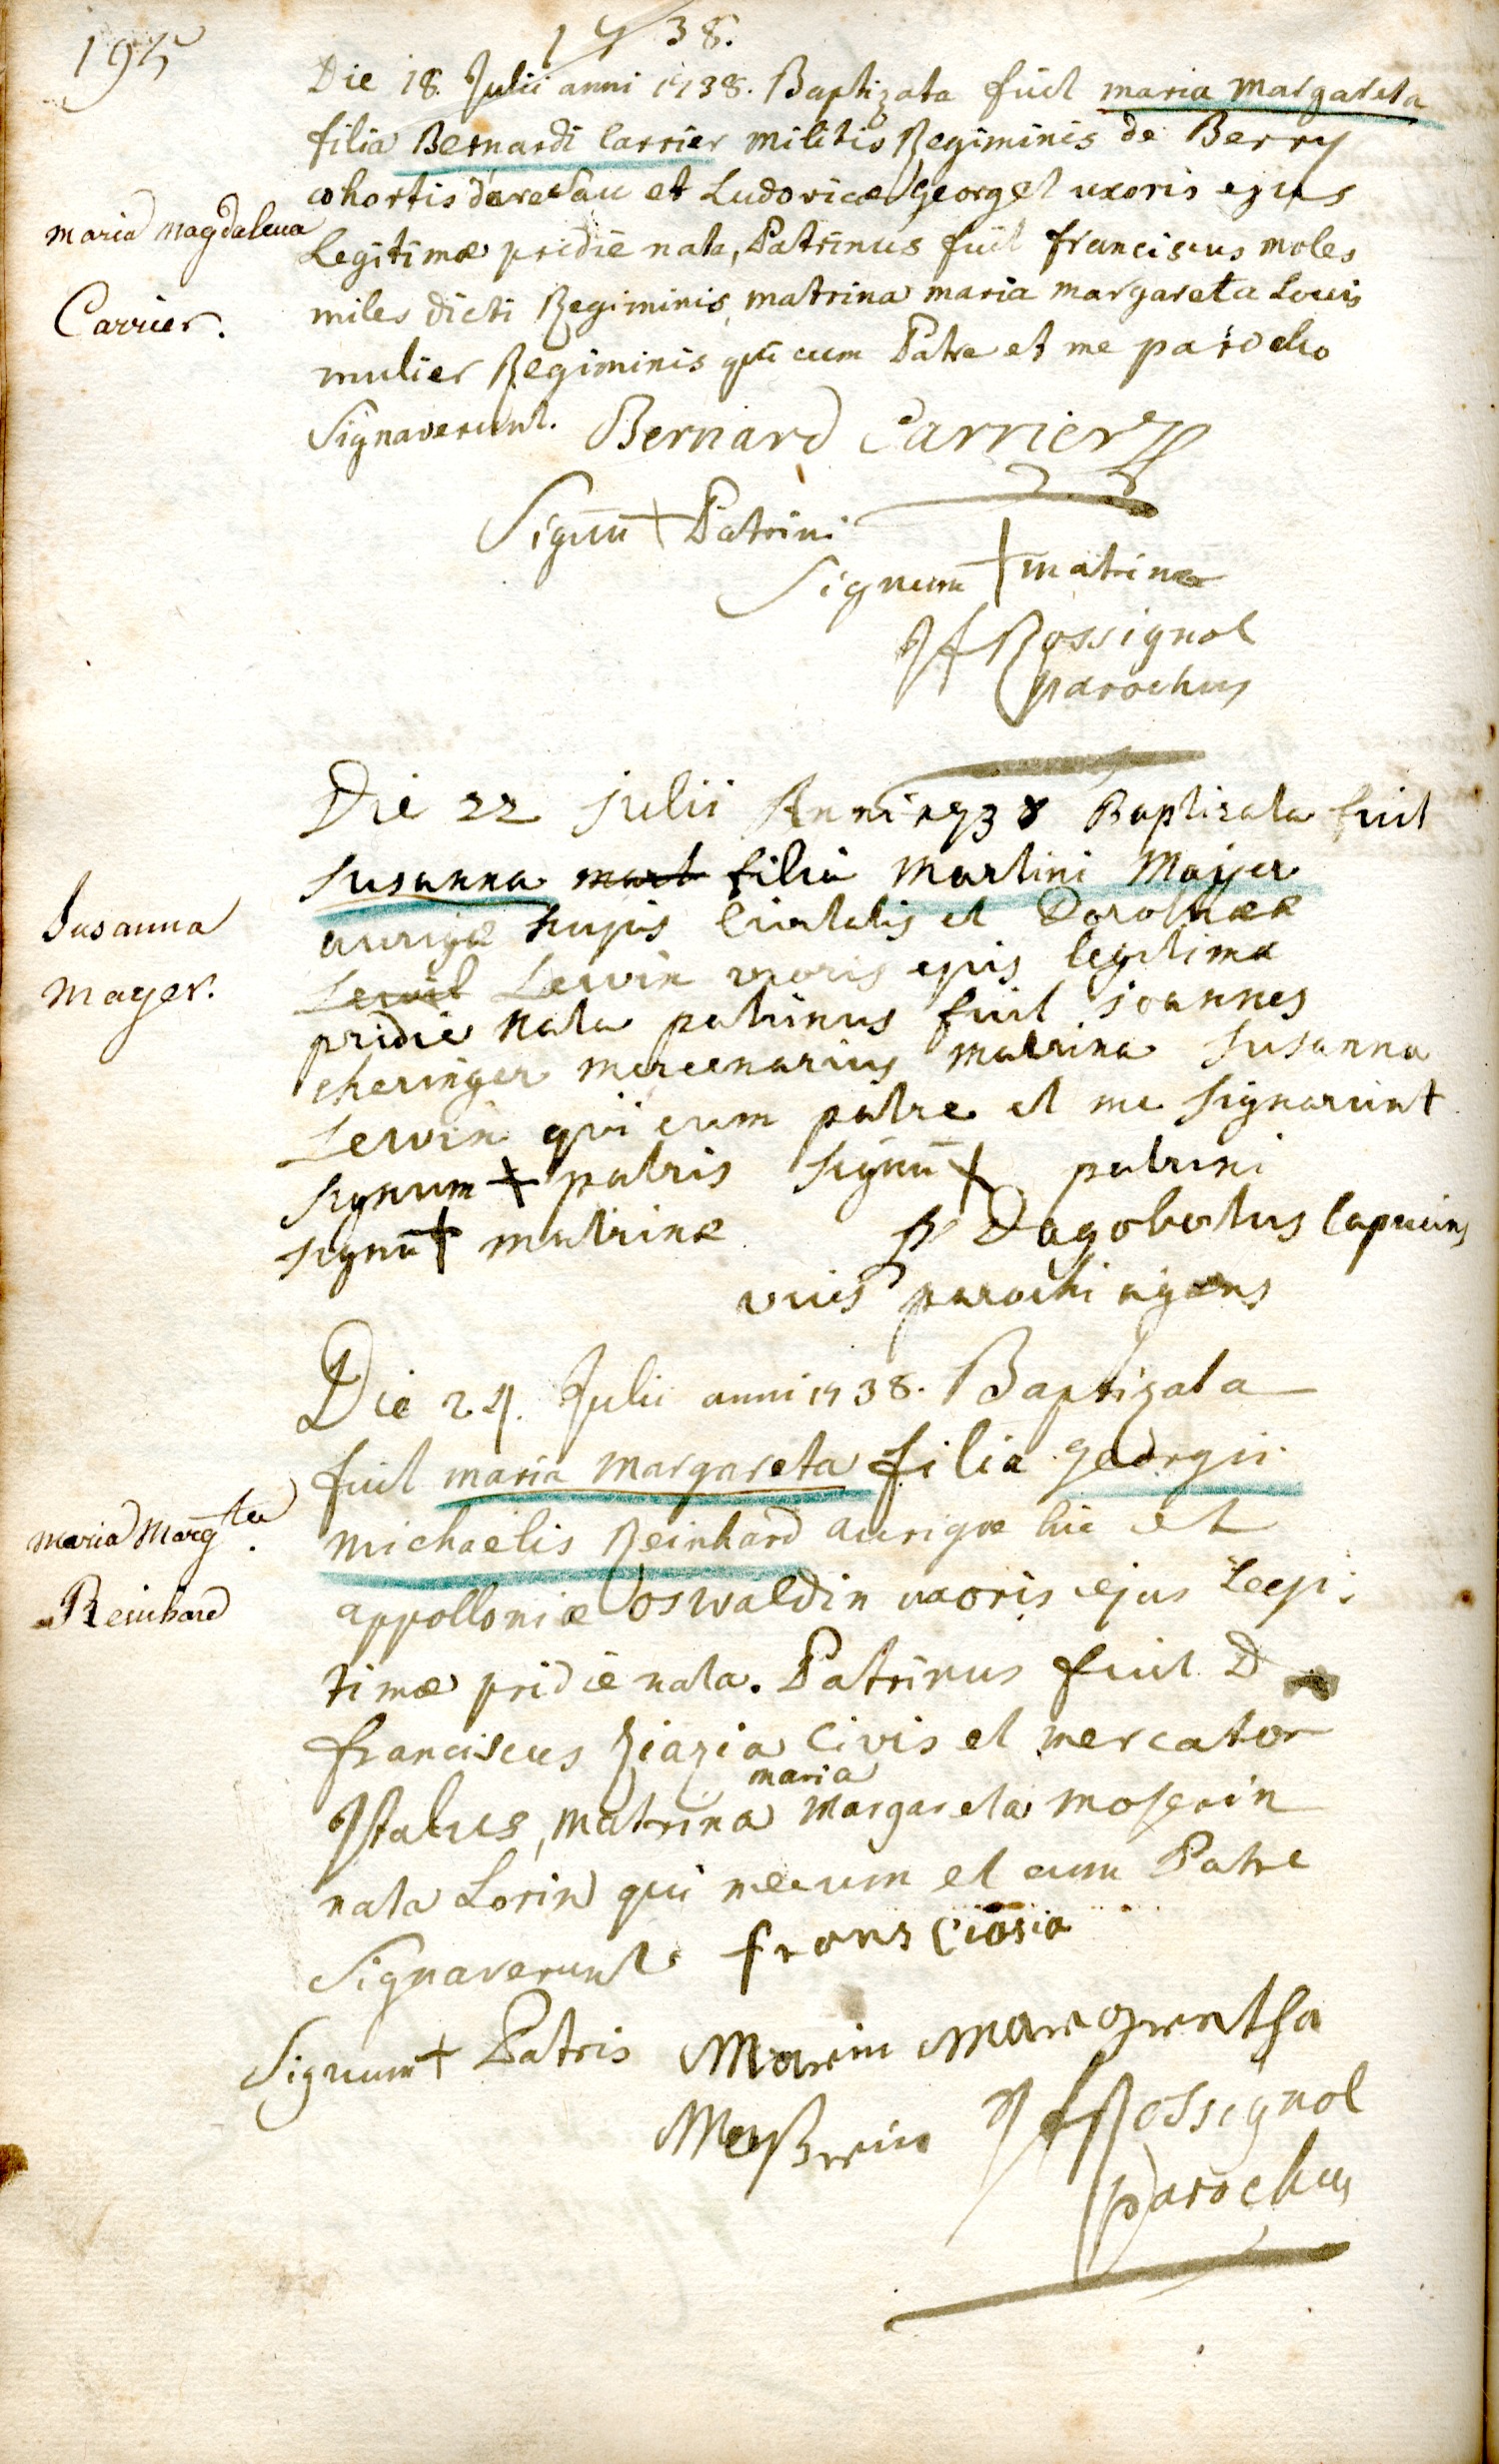 195
1738.
Die 18. Julii anni 1738. Baptizata fuit maria Margareta
filia Bernardi Carrier militis Regiminis de Berry
cohortis et Ludovicæ Georget uxoris ejus
maria Magdalena
Legitimæ pridie nata, Patrinus fuit franciscus moles
Carrier.
miles dicti Regiminis, matrina maria margareta Louis
mulier Regiminis qui cum Patre et me parocho
Signaverunt. Bernard Carrier
Signū + Patrini
Signum + matrinæ
JF Rossignol
parochus
Die 22 Julii Anni 1738 Baptizata fuit
Susanna mart filia Martini Majjer
Susanna
aurigæ hujus Civitatis et Dorotheæ
Mayer.
Lewin uxoris ejus legitimæ
pridie Nata patrinus fuit joannes
cheringer mercenarius matrina Susanna
Lewin qui cum patre et me signarunt
signum + patris signū + patrini
signū + matrinæ p Dagobertus Capucinus
vices parochi agens
Die 24. Julii anni 1738. Baptizata
fuit maria margareta filia georgii
Maria Margta.
michaelis Reinhard aurigæ hic et
Reinhard
appolloniæ oswaldin uxoris ejus Legi:
timæ pridie nata. Patrinus fuit D
franciscus Ziazia Civis et mercator
maria
Italus, matrina Margareta moserin
nata Lorin qui mecum et cum Patre
Signaverunt. frans Ciasia
Signum + Patris Maria Margretha
JF Rossignol
parochus